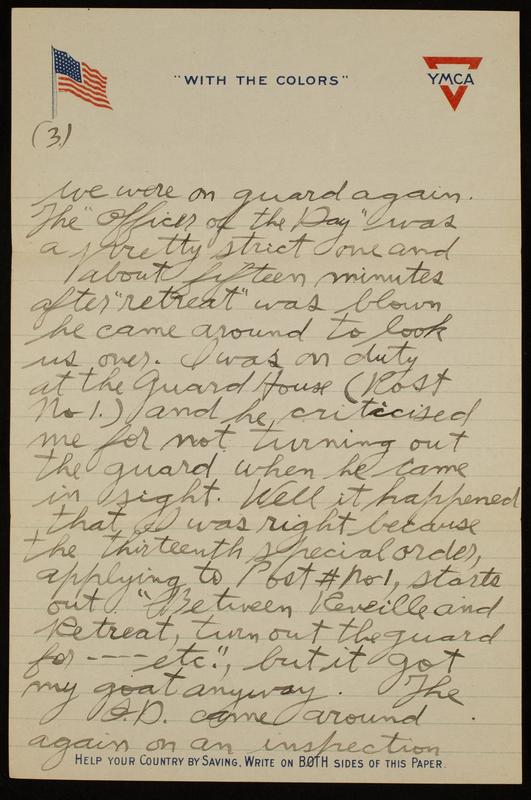 "WITH THE COLORS"
YMCA
(3)
we were on guard again.
The "Officer of the Day" was
a pretty strict one and
about fifteen minutes
after "retreat" was blown
he came around to look
us over. I was on duty
at the Guard House (Post
No 1.) and he criticised
me for not turning out
the guard when he came
in sight. Well it happened
that I was right because
the thirteenth special order,
applying to Post # No 1, starts
out "Between Reveille and
Retreat, turn out the guard
for ---- etc.", but it got
my goat anyway. The
O.D. came around
again on an inspection
HELP YOUR COUNTRY BY SAVING, WRITE ON BOTH SIDES OF THIS PAPER.